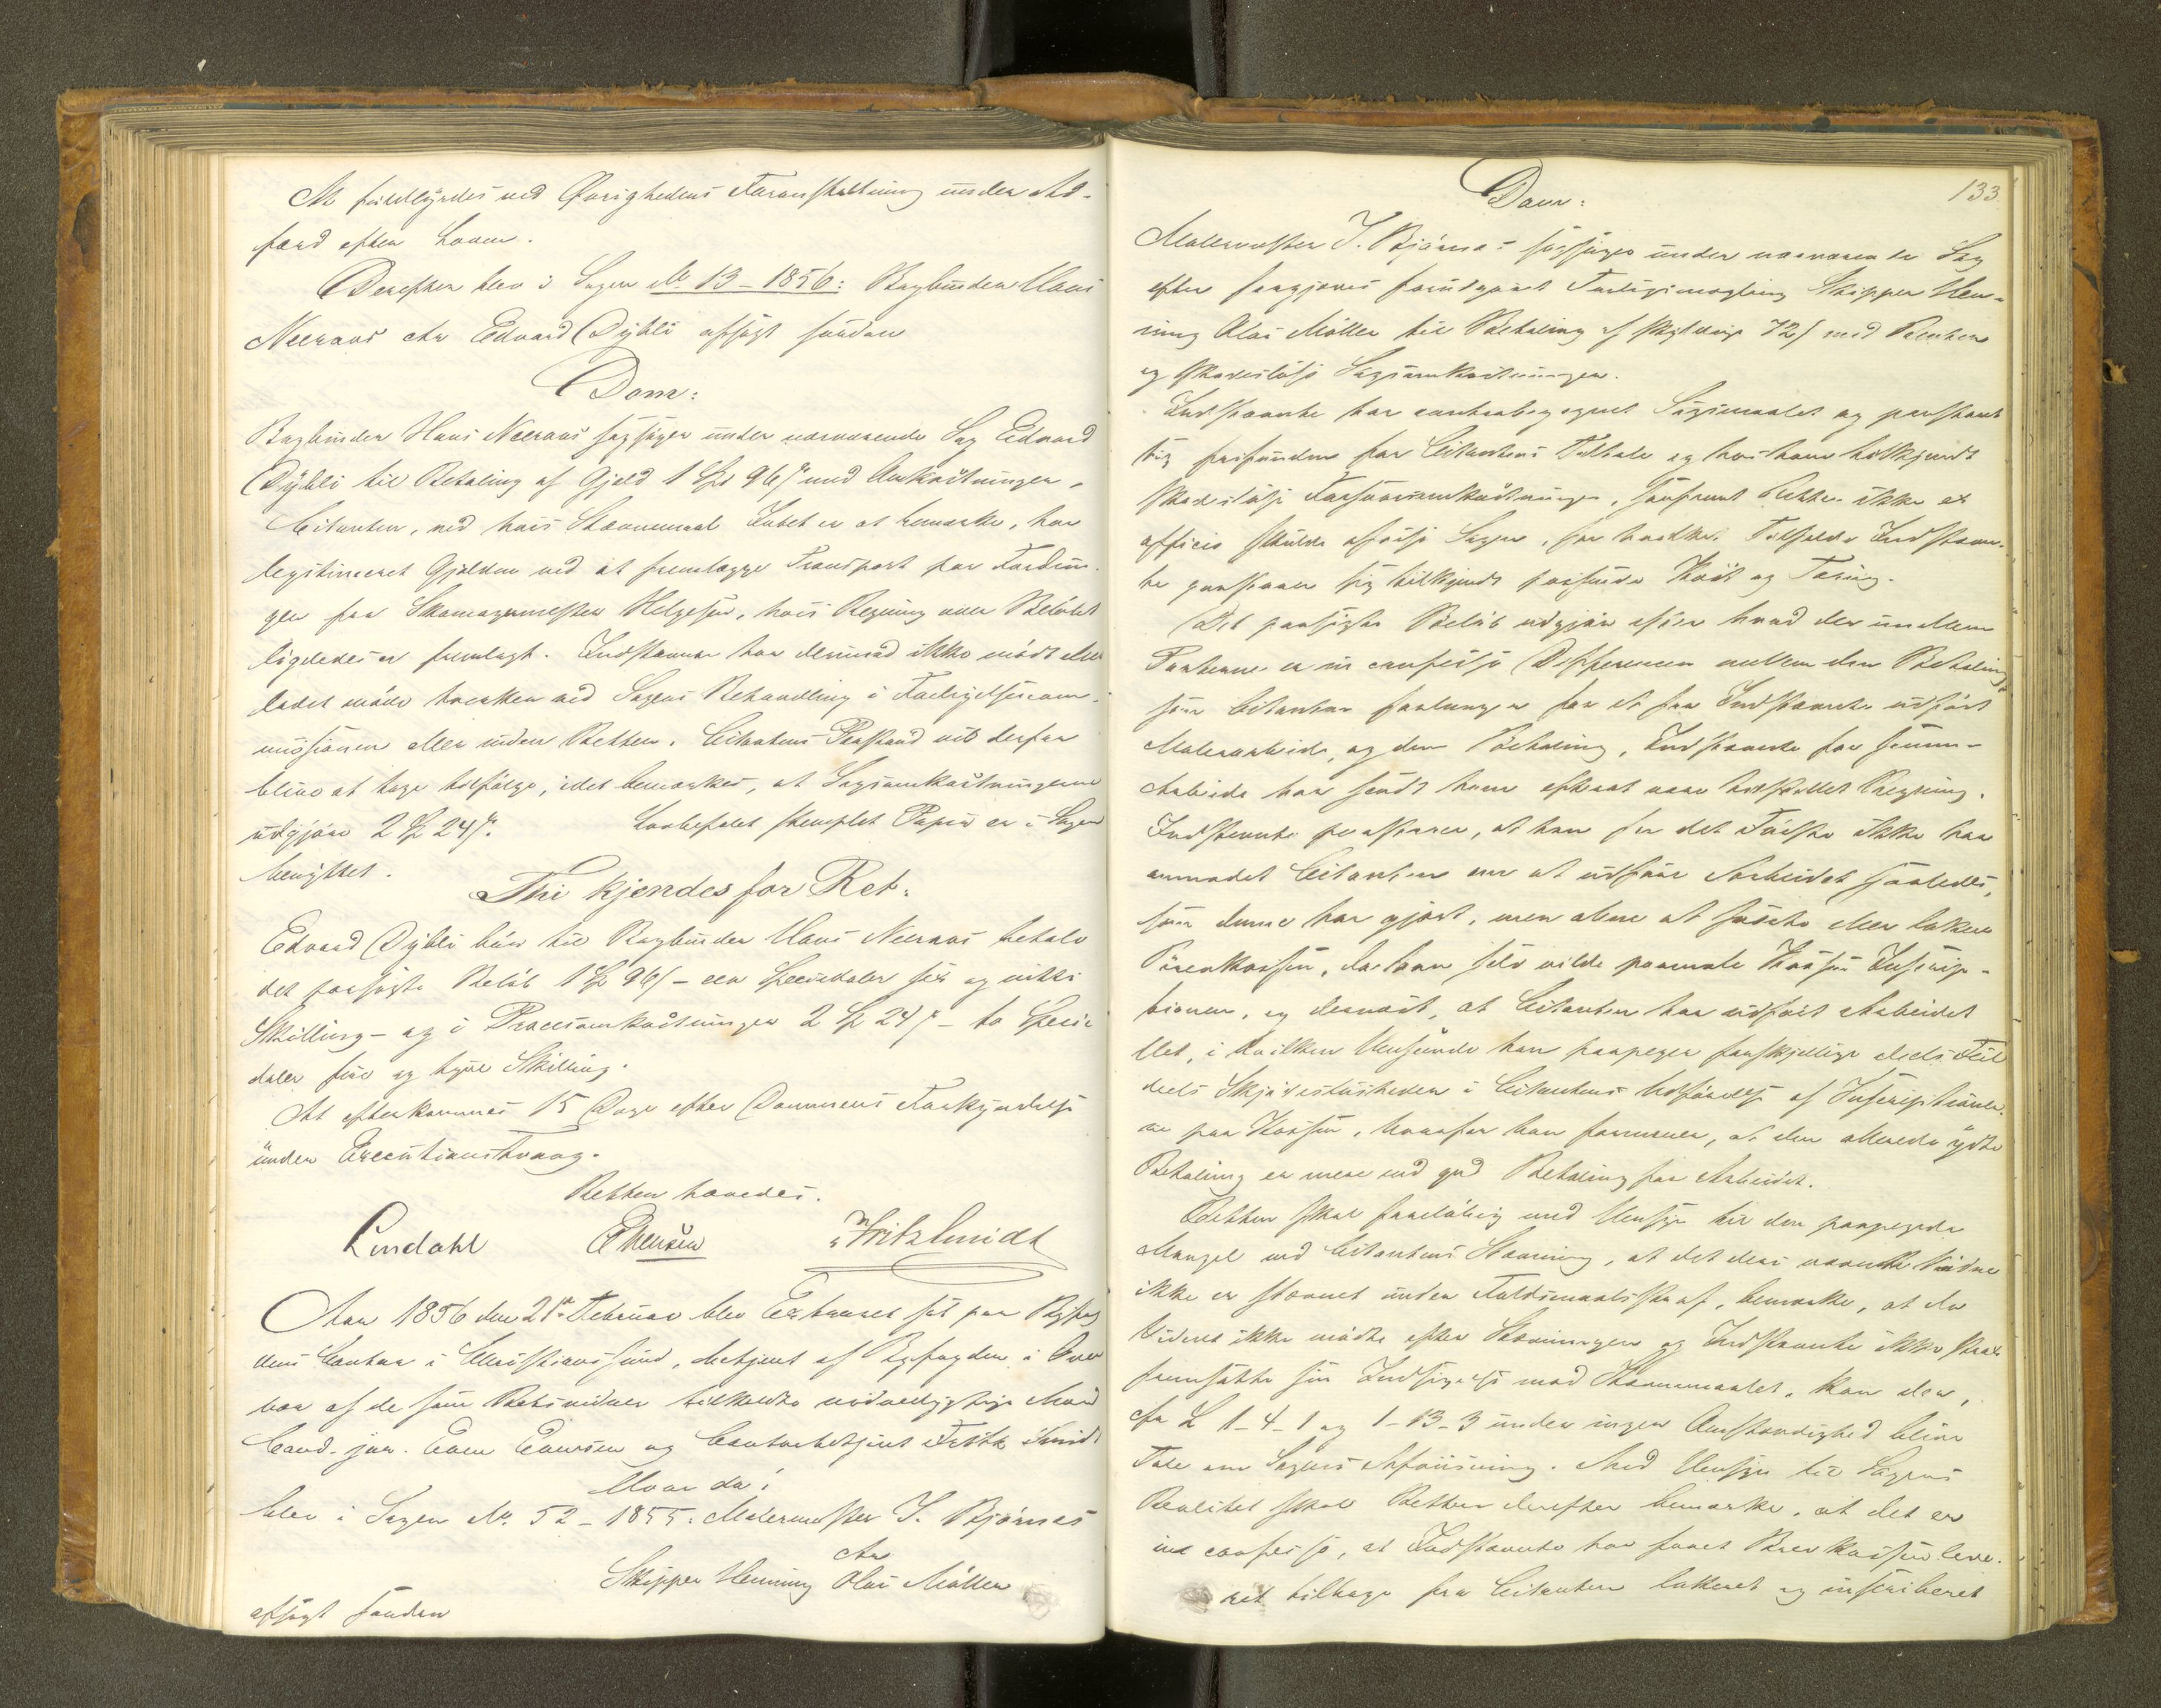 At fuldbyrdes ved Øvrighedens Foranstaltning under Ad-
færd efter Loven.
Derefter blev i Sagen No 13 - 1856: Bogbinder Hans
Neeraas ctr Edvard Dybli afsagt saadan
Dom:
Bogbinder Hans Neeraas sagsøger under nærværende Sag Edvard
Dybli til Betaling af Gjeld 1 Spd 96 s med Omkostninger.
Citanten, ved hvis Stævnemaal Intet er at bemærke, har
legitimeret Gjelden ved at fremlægge Transport paa Fordrin-
gen fra Skomagermester Helgesen, hvis Regning over Beløbet
ligeledes er fremlagt. Indstævnte har derimod ikke mødt eller
ladet møde hverken ved Sagens Behandling i Forligelsescom-
missionen eller under Retten. Citantens Paastand vil derfor
blive at tage tilfølge, idet bemærkes, at Sagsomkostningerne
udgjøre 2 Sp 24 s. Lovbefalet stemplet Papir er i Sagen
benyttet.
Thi kjendes for Ret:
Edvard Dybli bør til Bogbinder Hans Neeraas betale
det paasøgte Beløb 1 Sp 96 s - een Speciedaler sex og nitti
Skilling - og i Procesomkostninger 2 Sp 24 s - to Specie
daler fire og tyve Skilling.
At efterkommes 15 Dage efter Dommens Forkyndelse
under Executionstvang.
Retten hævedes.
Lindahl E Evensen Fritz Smidt
Aar 1856 den 21de Februar blev Extraret sat paa Byfog
dens Contor i Christianssund, betjent af Byfogden i Over
vær af de som Retsvidner tilkaldte vidnedygtige Mænd
Cand. jur. Even Evensen og Contorbetjent Fritz Smidt
Hvor da:
blev i Sagen No. 52 - 1855: Malermester J. Bjørnes
ctr
Skipper Henning Olai Møller
afsagt saadan
133
Dom:
Malermester J. Bjørnes sagsøger under nærværende Sag
efter foregaaende forudgaaet Forligsmægling Skipper Hen-
ning Olai Møller til Betaling af 72 s med Renter
og skadesløse Sagsomkostninger.
Indstævnte har Søgsmaalet og paastaaet
sig frifunden for Citantens Tiltale og hos ham tilkjendt
skadesløse Forsvarsomkostninger, saafremt Retten ikke ex
officio skulde afvise Sagen, for hvilket Tilfælde Indstævn-
te paastaaer sig tilkjendt Kost og Tæring.
Det paasøgte Beløb udgjør efter hvad der mellem
Parterne er in confesso Differencen mellem den Betaling
som Citanten forlanger for et for Indstævnte udført
Malerarbeide, og den Betaling, Indstævnte for samme
Arbeide har sendt ham efterat være tilstillet Regning.
Indstævnte paastaaer, at han for det Første ikke har
anmodet Citanten om at udføre Arbeidet saaledes,
som denne har gjort, men alene at eller lakere
, da han selv vilde paamale Kassen Inscrip-
tionen, og dernæst, at Citanten har udført Arbeidet
slet, i hvilken Henseende han paapeger forskjellige deels Feil
deels Skjødesløsheder i Citantens Udførelse af Inscriptioner-
ne paa Kassen, hvorfor han formener, at den allerede ydte
Betaling er mere end god Betaling for Arbeidet.
Retten skal foreløbig med Hensyn til den paapegede
Mangel ved Citantens Stævning, at det deri nævnte Vidne
ikke er stævnet under Faldsmaalsstraf, bemærke, at da
Vidnet ikke mødte efter Stævningen og Indstævnte ikke strax
fremsatte sin Indsigelse mod Stævnemaalet, kan der,
cfr L 1-4-1 og 1-13-3 under ingen Omstændighed blive
Tale om Sagens Afviisning. Med Hensyn til Sagens
Realitet skal Retten derefter bemærke, at det er
in confesso, at Indstævnte har faaet Kassen leve-
ret tilbage fra Citanten lakeret og inscriberet